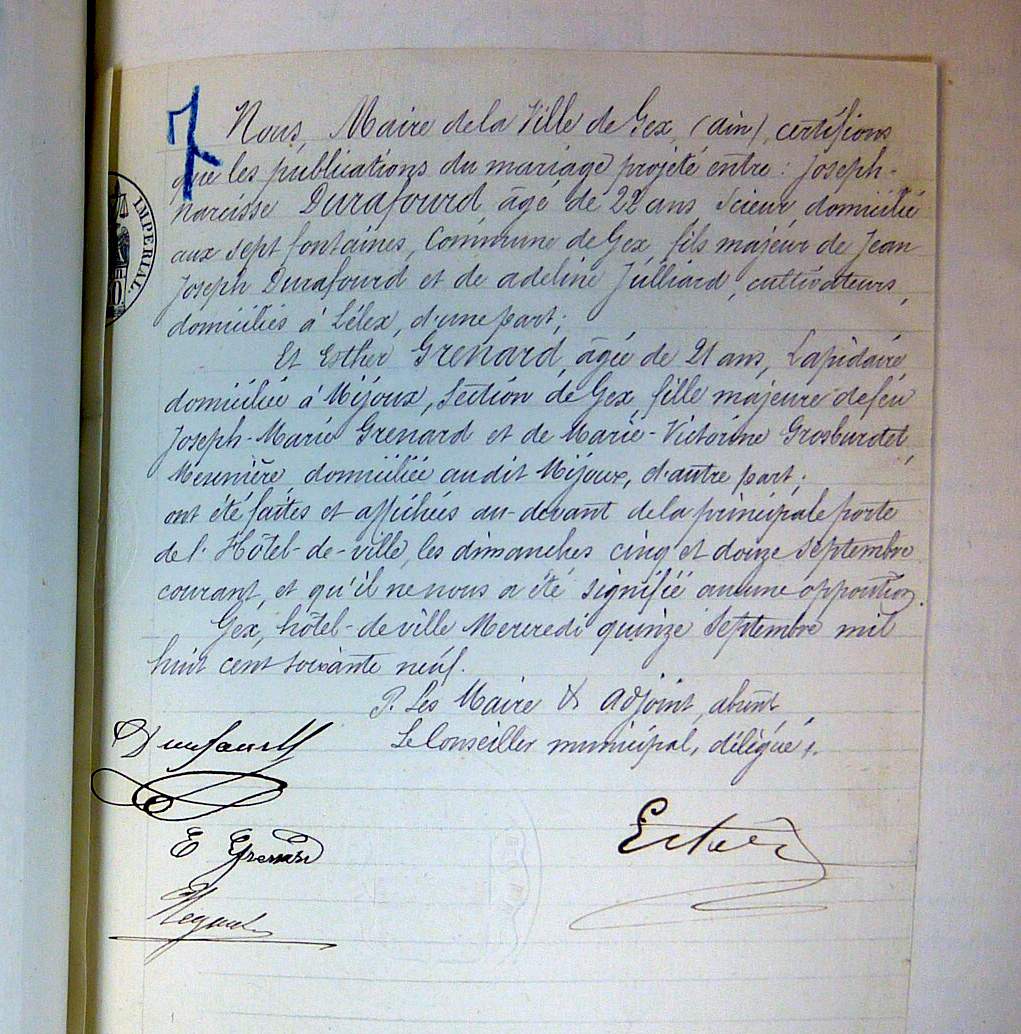 7
Nous, Maire de la Ville de Gex, (ain), certifions
que les publications du mariage projeté entre : Joseph-
narcisse Durafourd, âgé de 22 ans, Scieur, domicilié
aux sept fontaines, Commune de Gex, fils majeur de Jean
Joseph Durafourd et de adeline Julliard, cultivateurs,
domiciliés à Lélex, d'une part;
Et Esther Grenard, âgée de 21 ans, Lapidaire
domiciliée à Mijoux, Section de Gex, fille majeure de feu
Joseph-Marie Grenard et de Marie-Victorine Grosburdet,
Meunière, domiciliée audit Mijoux, d'autre part;
ont été faites et affichées au-devant de la principale porte
de l'Hôtel-de-ville, les dimanches cinq et douze Septembre
courant, et qu'il ne nous a été signifié aucune opposition.
Gex, hôtel-de ville Mercredi quinze Septembre mil
huit cent soixante neuf.
P. Les Maire & adjoint, absents,
Le Conseiller municipal, délégué.
Durafourd
E Grenard
IMPERIAL.